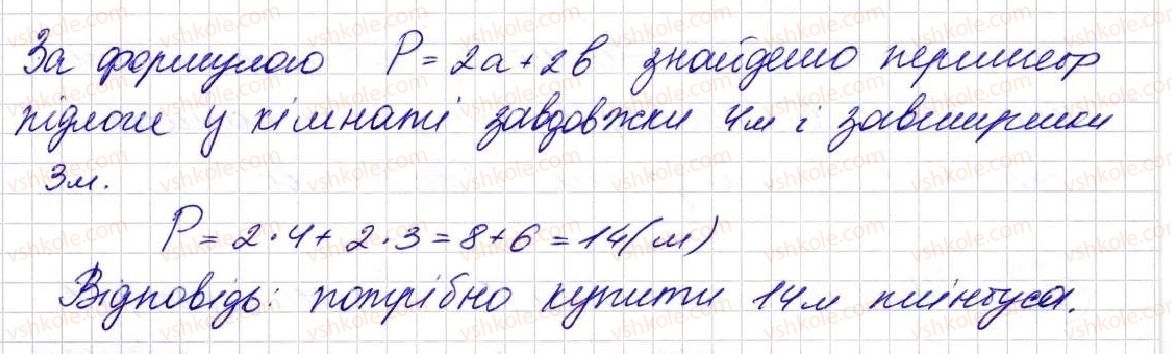 За формулою P = 2a + 2b знайдемо периметр
підлоги у кімнаті завдовжки 4м і завширшки
3м.
P = 2 · 4 + 2 · 3 = 8 + 6 = 14 (м)
Відповідь: потрібно купити 14м плінтуса.
vshkole.com